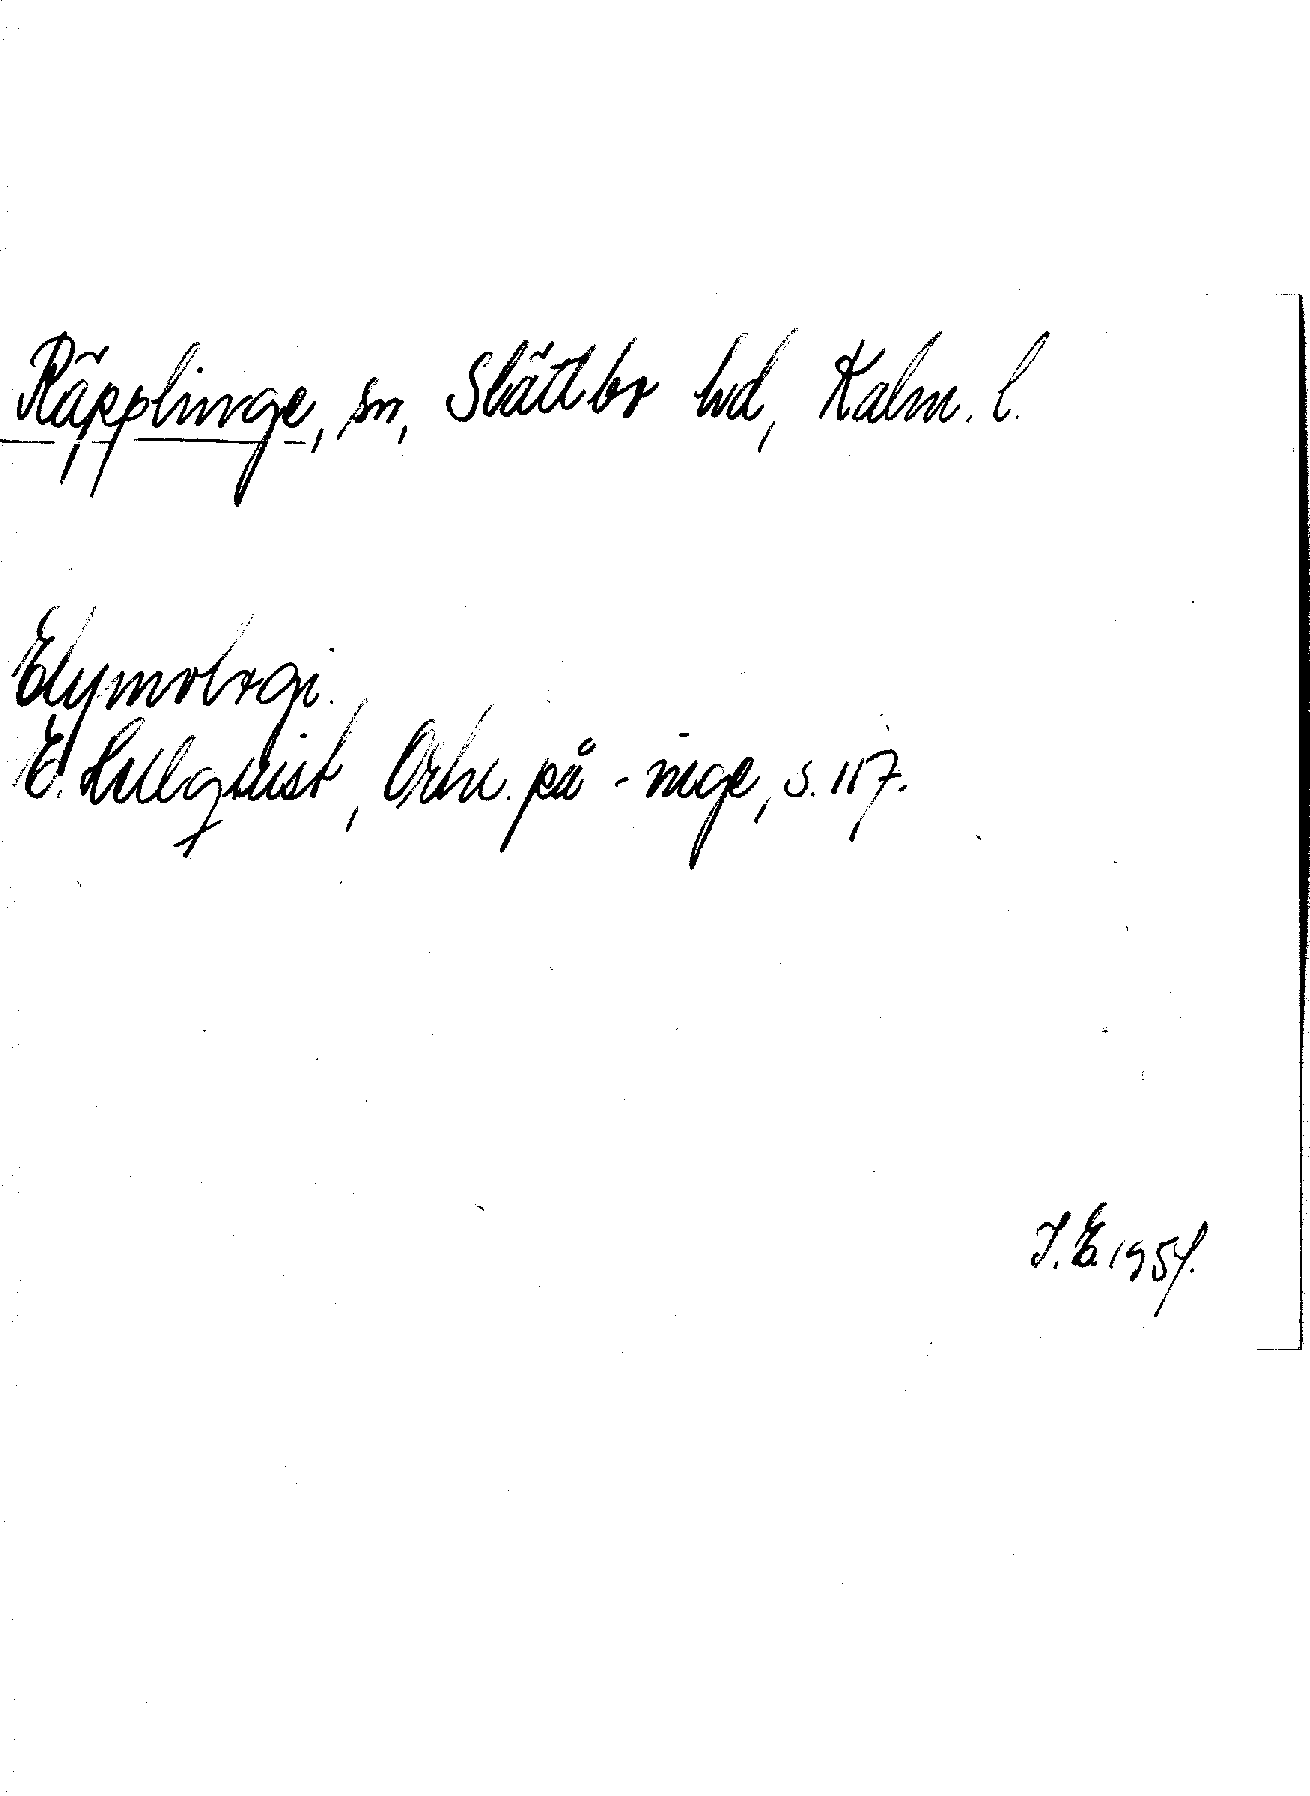 Räpplinge, sn, Slättbo hd, Kalm. l.
Etymologi.
E. Hellquist, Ortn. på -inge, s. 117.
J. E. 1951.